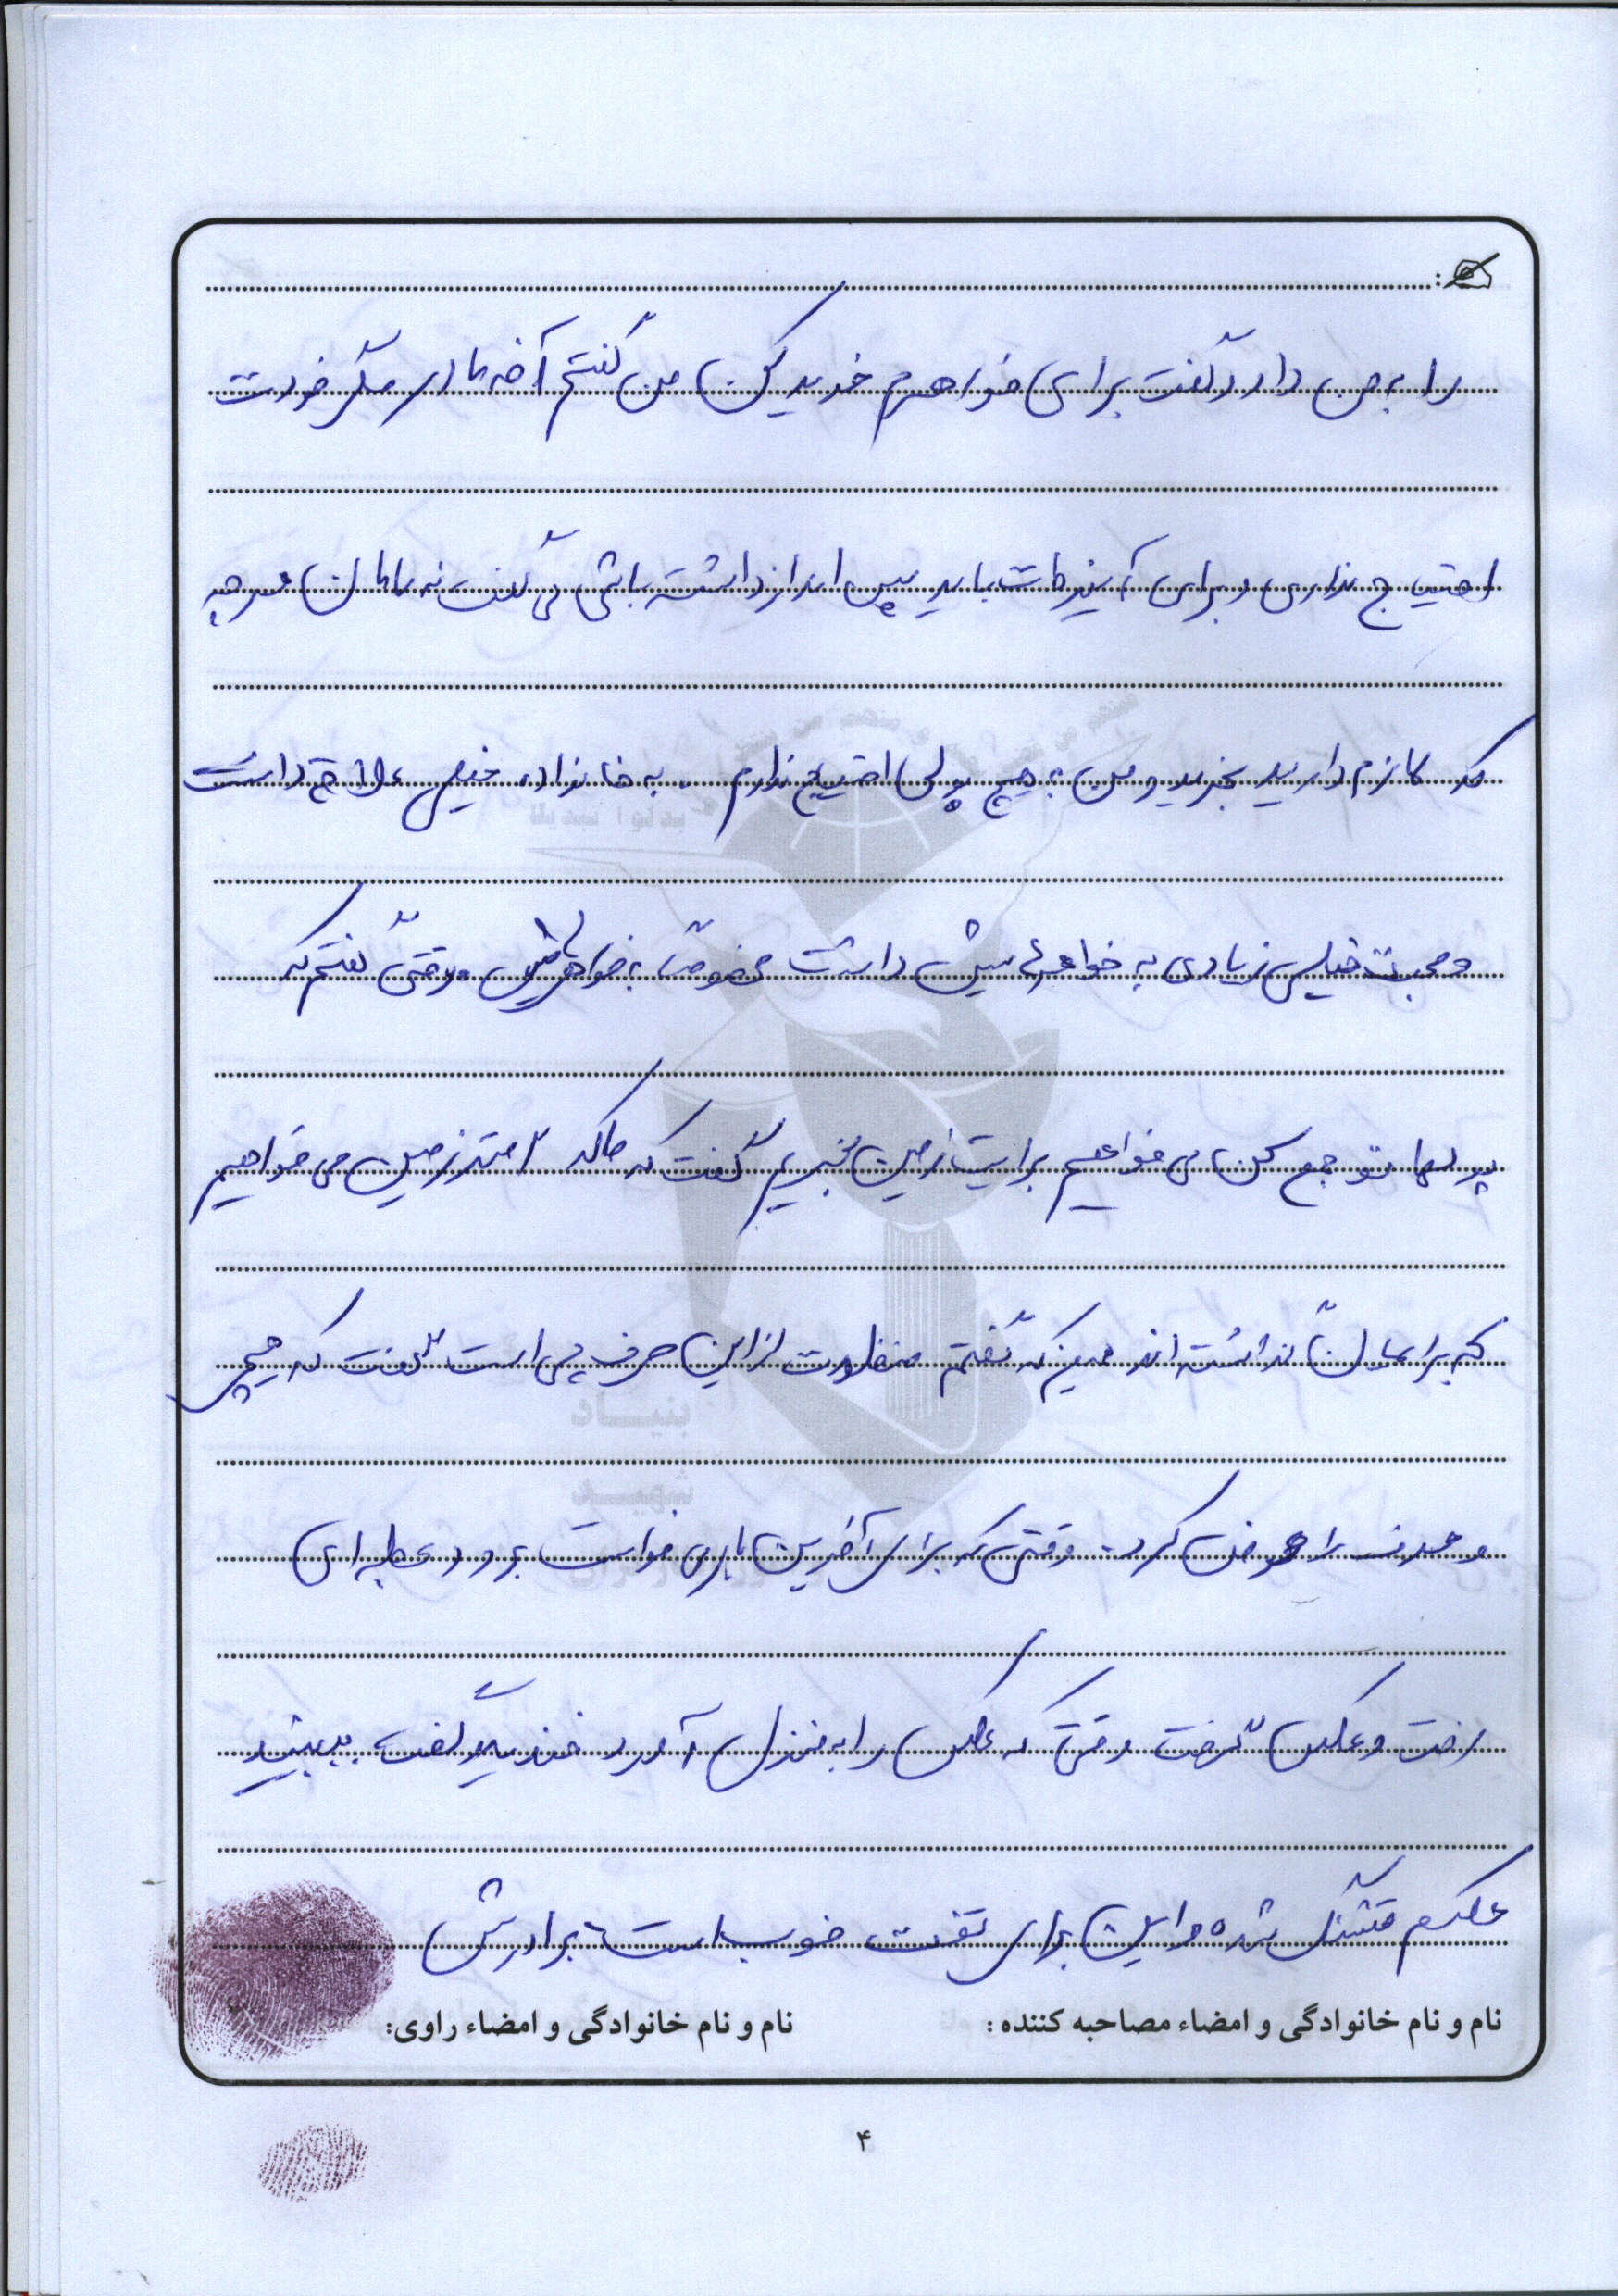 را به من داد و گفت برای خواهرم خرید کن من گفتم آخه مادر مگر خودت
احتیاج نداری و برای آینده‌ات باید پس انداز داشته باشی می گفت نه مامان هر چه
که لازم دارید بخرید و من به هیچ پولی احتیاج ندارم . به خانواده خیلی علاقه داشت
و محبت خیلی زیادی به خواهرهایش داشت مخصوصا به خواهر وقتی گفتم که
پولها تو جمع کن می خواهیم برایت زمین بخریم گفت که ما که ۲ متر زمین می خواهیم
که برایمان همین که گفتم منظورت از این حرف چی است گفت که هیچی
و حرف را عوض کرد. وقتی که برای آخرین بار می خواست برود عکاسی
رفت و عکس گرفت وقتی که عکس را به منزل آورد خندید و گفت ببینید
عکسم قشنگ شده و این برای خوب است برادرش
نام و نام خانوادگی و امضاء مصاحبه کننده : نام و نام خانوادگی و امضاء راوی:
۴